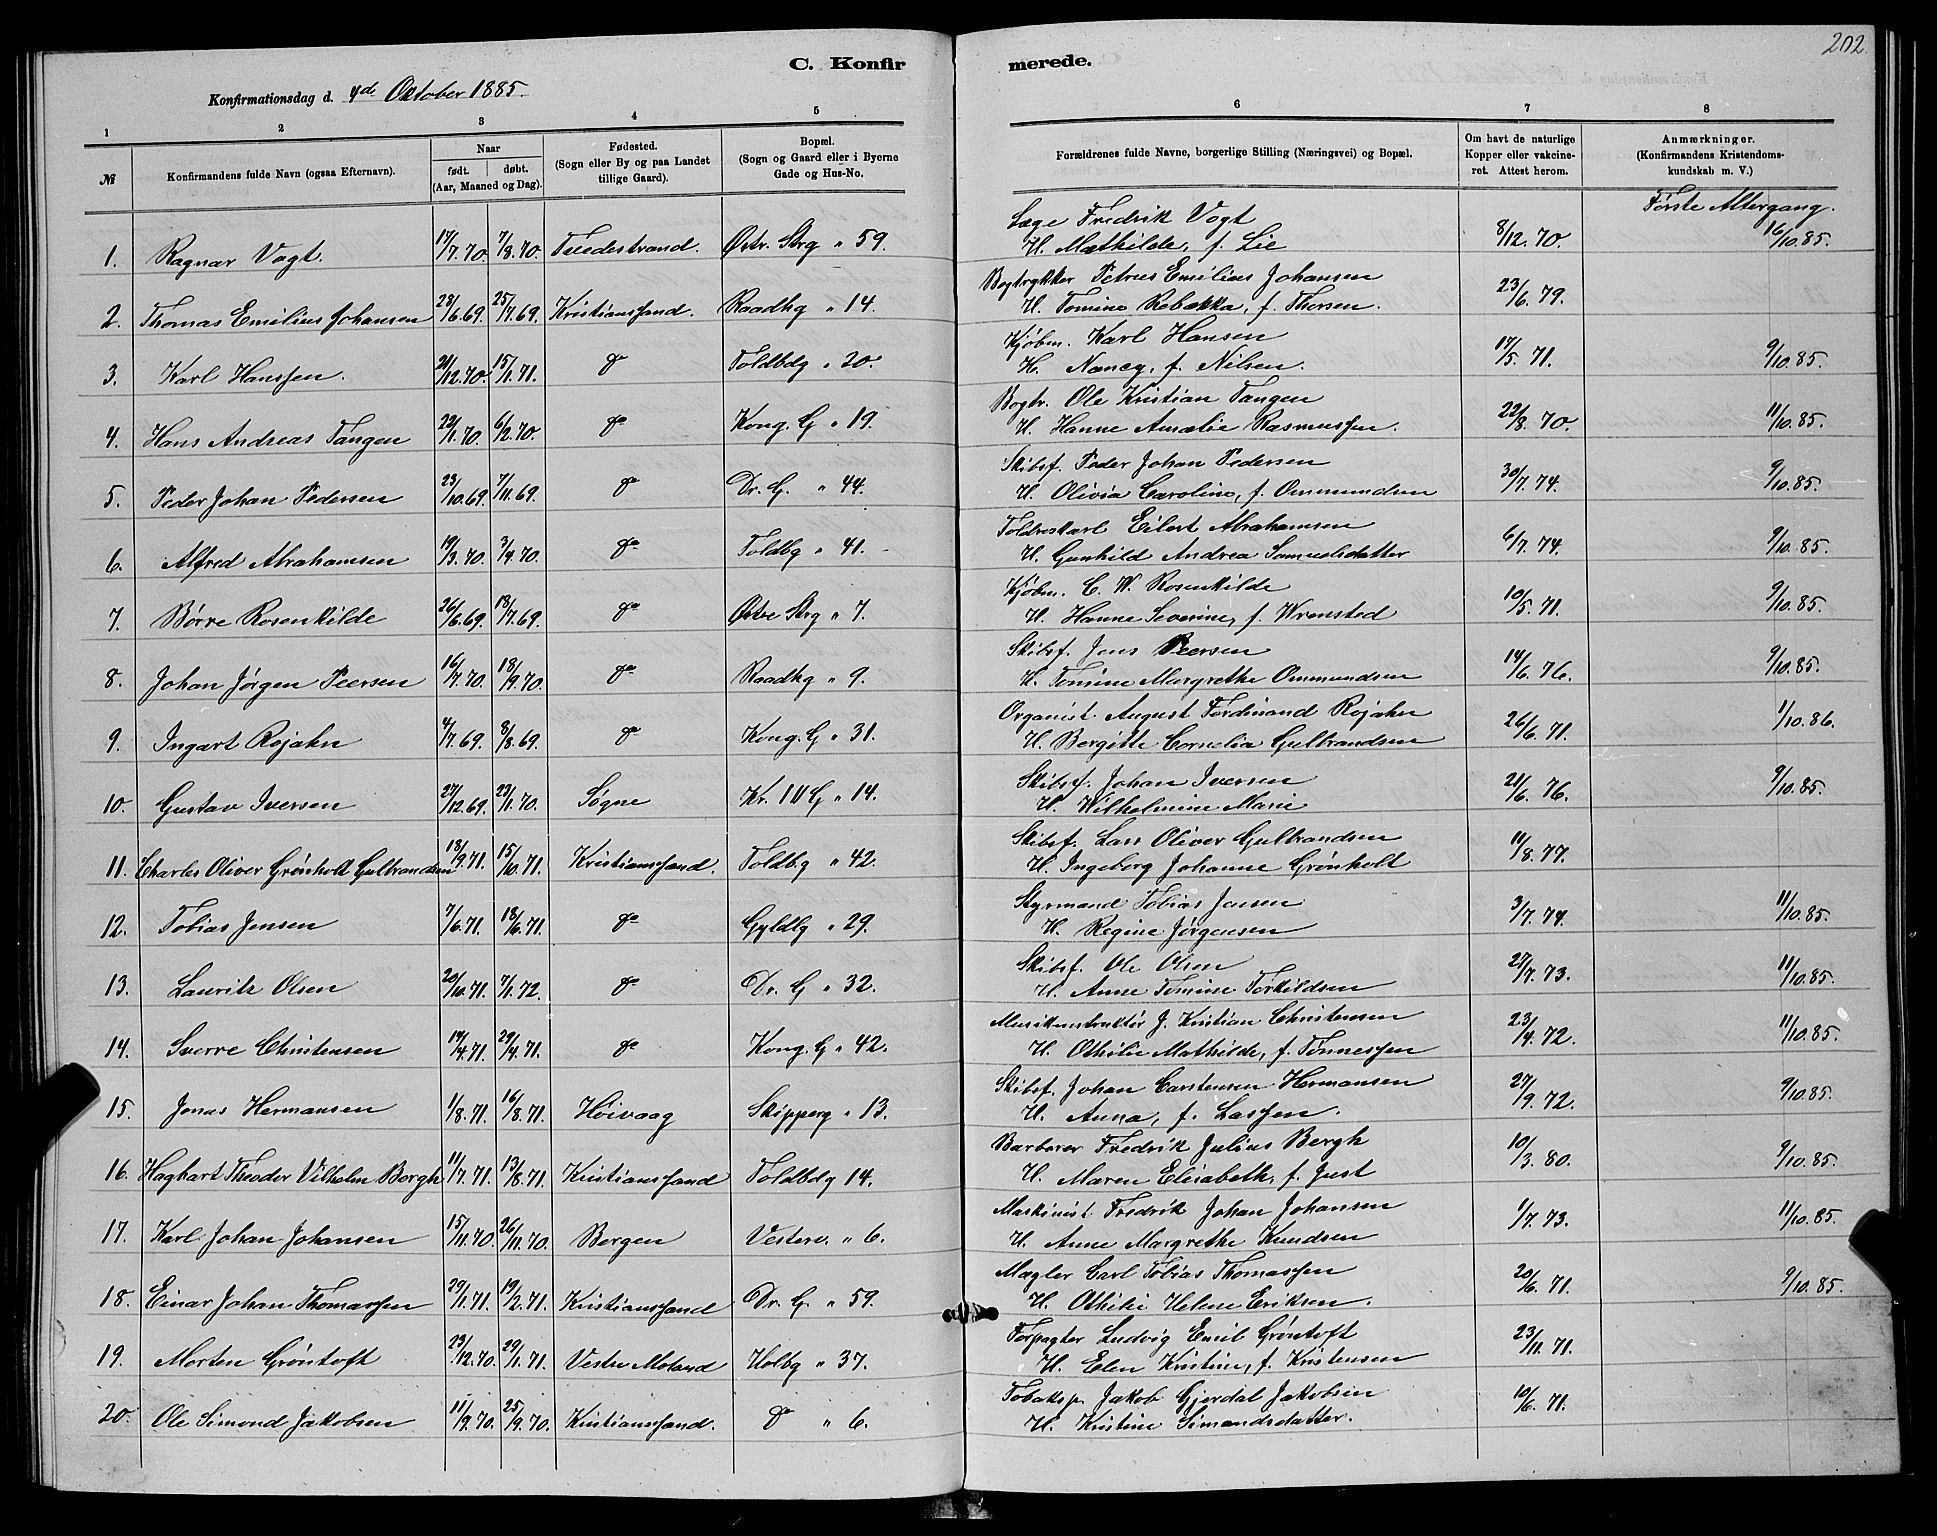 202.
C. Konfirmerede.
Konfirmationsdag d. 4de Oktober 1885.
1 2 3 4 5 6 7 8
№ Konfirmandens fulde Navn (ogsaa Efternavn). Naar født. døbt. (Aar, Maaned og Dag). Fødested. (Sogn eller By og paa Landet tillige Gaard). Bopæl. (Sogn og Gaard eller i Byerne Gade og Hus-No. Forældrenes fulde Navne, borgerlige Stilling (Næringsvei) og Bopæl. Om havt de naturlige Kopper eller vakcineret. Attest herom. Anmærkninger. (Konfirmandens Kristendomskundskab m. V.)
Første Altergang.
1. Ragnar Vogt. 17/7.70. 7/8.70. Tvedestrand. Østr. Strg " 59. Læge Fredrik Vogt 8/12.70. 16/10.85.
H. Mathilde, f. Lie
2. Thomas Emilius Johansen 28/6.69. 25/7.69. Kristianssand. Raadhg " 14. Bogtrykker Petrus Emilius Johansen 23/6.79.
H. Tomine Rebekka, f. Thorsen.
3. Karl Hanssen. 21/12.70. 15/1.71. do Toldbdg " 20. Kjøbm. Karl Hansen 17/5.71. 9/10.85.
H. Nancy, f. Nilsen.
4. Hans Andreas Tangen 22/1.70. 6/2.70. do Kong. G " 19. Bogtr. Ole Kristian Tangen 22/8.70. 11/10.85.
H. Hanne Amalie Rasmussen.
5. Peder Johan Pedersen 23/10.69. 7/11.69. do Dr. G. " 44. Skibsf. Peder Johan Pedersen 30/7.74. 9/10.85.
H. Olivia Caroline, f. Ommundsen
6. Alfred Abrahamsen 19/3.70. 3/4.70. do Toldbg " 41. Toldroskarl Eilert Abrahamsen 6/7.74. 9/10.85.
H. Gunhild Andrea Samuelsdatter
7. Børre Rosenkilde 26/6.69. 18/7.69. do Østre Strg " 7. Kjøbm. C. W. Rosenkilde 10/5.71. 9/10.85.
H. Hanne Severine, f. Wrensted
8. Johan Jørgen Peersen 16/7.70. 18/9.70. do Raadhg " 9. Skibsf. Jens Peersen 14/6.76. 9/10.85.
H. Tomine Margrethe Ommundsen
9. Ingart Rojahn 4/7.69. 8/8.69. do Kong. G " 31. Organist August Ferdinand Rojahn 26/6.71. 1/10.86.
H. Bergitte Cornelia Gulbrandsen
10. Gustav Iversen 27/12.69. 23/1.70. Søgne Kr. IV G " 14. Skibsf. Johan Iversen 21/6.76. 9/10.85.
H. Wilhelmine Marie
11. Charles Oliver Grønholt Gulbrandsen 18/9.71. 15/10.71. Kristianssand. Toldbg " 42. Skibsf. Lars Oliver Gulbrandsen 11/8.77.
H. Ingeborg Johanne Grønholt
12. Tobias Jensen 7/6.71. 18/6.71. do Gyldlg " 29. Styrmand Tobias Jensen 3/7.74. 11/10.85.
H. Regine Jørgensen
13. Lauritz Olsen 20/10.71. 7/1.72. do Dr. G " 32. Skibsf. Ole Olsen 27/7.73. 11/10.85.
H. Anne Tomine Torkildsen
14. Sverre Christensen 14/4.71. 29/4.71. do Kong. G " 42. Musikinstruktør J. Kristian Christensen 23/4.72. 11/10.85.
H. Othilie Mathilde, f. Tønnessen
15. Jonas Hermansen 1/8.71. 16/8.71. Høivaag Skipperg " 13. Skibsf. Johan Carstensen Hermansen 27/9.72. 9/10.85.
H. Anna, f. Lassen.
16. Haghart Theodor Vilhelm Bergh 11/7.71. 13/8.71. Kristianssand Toldbdg 14. Barberer Fredrik Julius Bergh 10/3.80. 9/10.85.
H. Maren Elisabeth, f. Just
17. Karl Johan Johansen 15/11.70. 26/11.70. Bergen Vesterv. " 6. Maskinist Fredrik Johan Johansen 1/7.73. 11/10.85.
H. Anne Margrethe Knudsen
18. Einar Johan Thomassen 29/1.71. 19/2.71. Kristianssand Dr. G. " 59. Mægler Carl Tobias Thomassen 20/6.71. 9/10.85.
H. Othilie Helene Eriksen.
19. Morten Grøntoft 23/12.70. 29/1.71. Vestre Moland Holbg " 37. Forpagter Ludvig Emil Grøntoft 23/11.71.
H. Elen Kristine, f. Kristensen
20. Ole Simond Jakobsen 11/9.70. 25/9.70. Kristianssand. do " 6. Tobaksp. Jakob Gjerdal Jakobsen 10/6.71.
H. Kristine Simandsdatter.